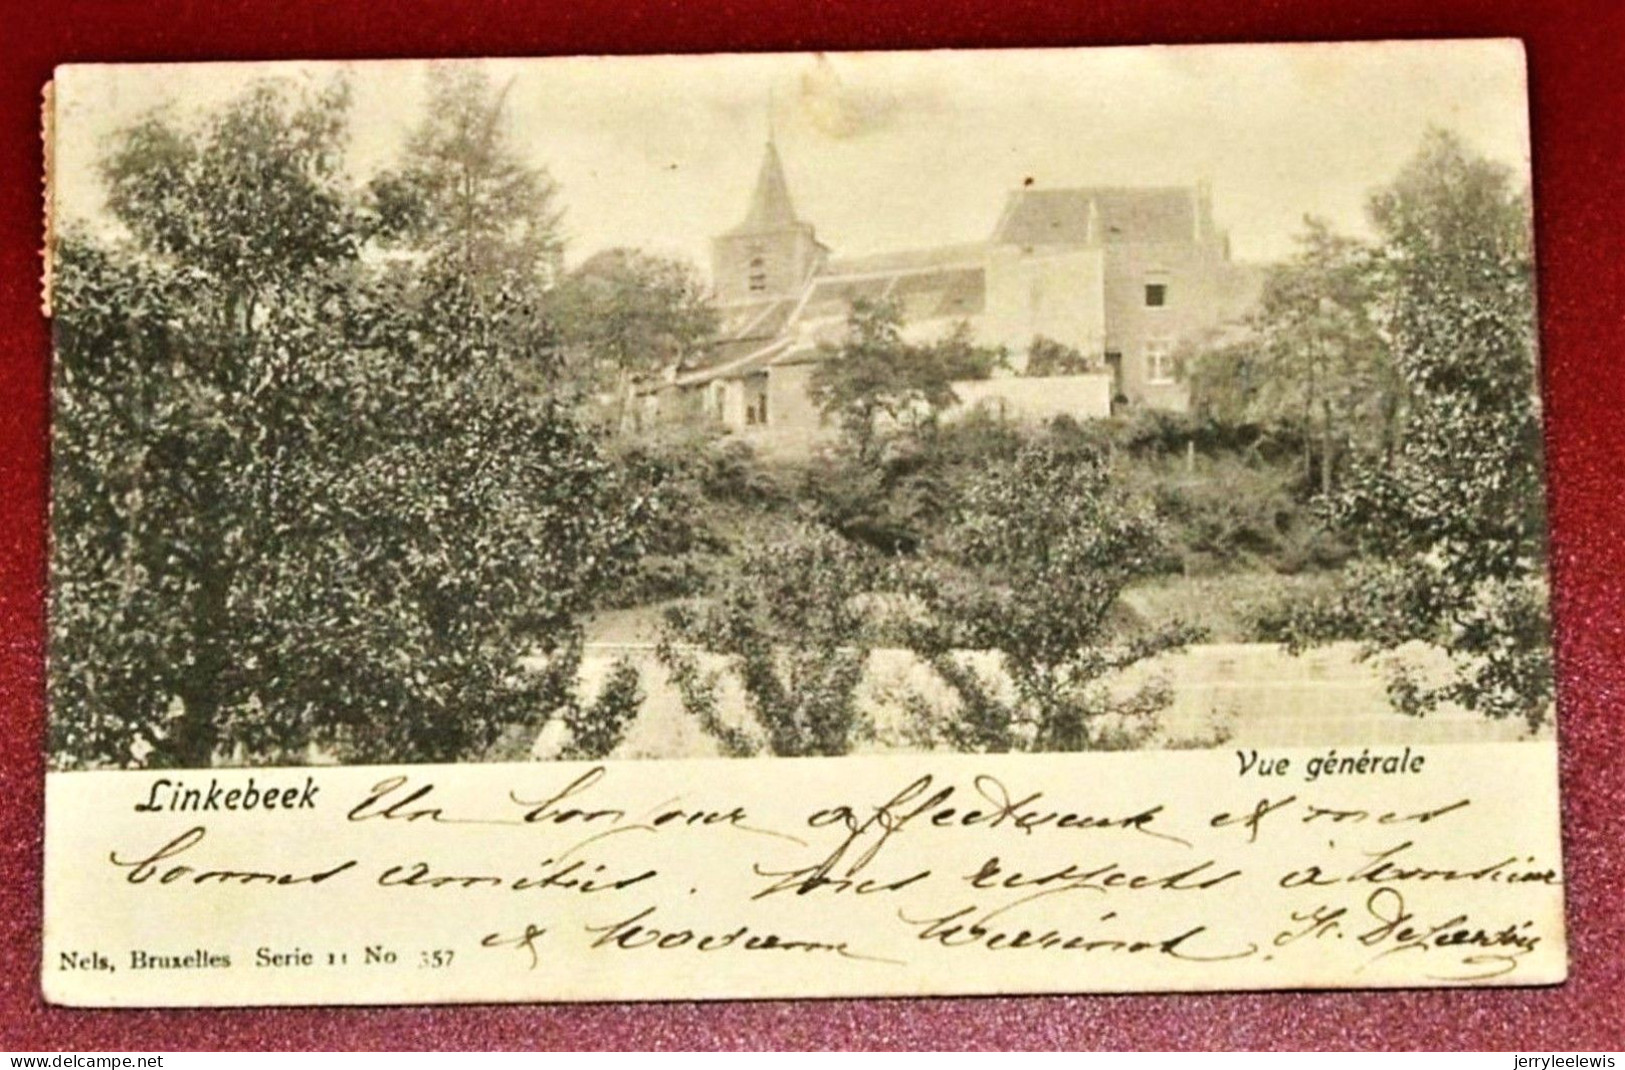 Vue générale
Linkebeek Un bonjour affectueux et mes
bonnes amitiés. Mes respects à Monsieur
et Madame
Nels, Bruxelles Serie 11 No 357
www.delcampe.net
jerryleelewis